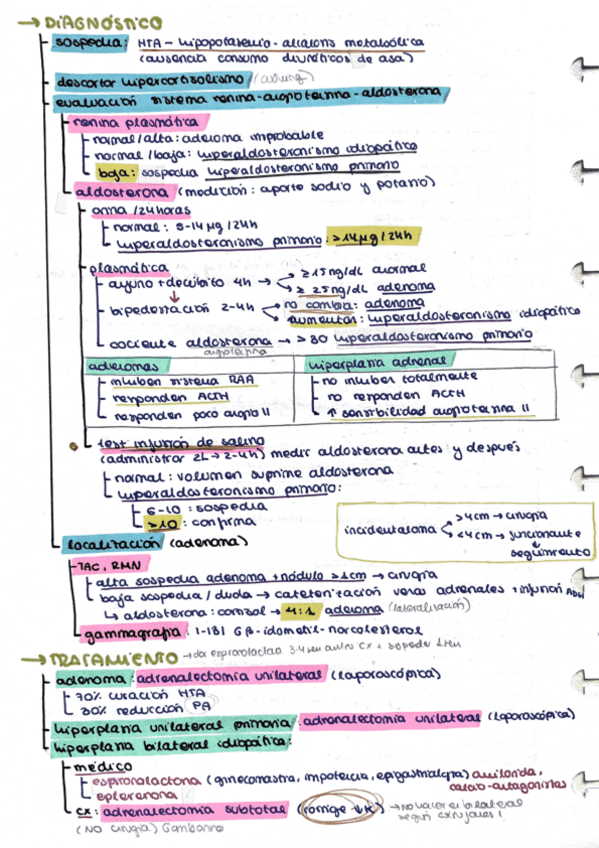 → DIAGNÓSTICO
sospecha: HTA - hipopotasemia - alcalosis metabólica
(ausencia consumo diuréticos de asa)
descartar hipercortisolismo (cushing)
evaluación sistema renina-angiotensina-aldosterona
renina plasmática
normal/alta: adenoma improbable
normal/baja: hiperaldosteronismo idiopático
baja: sospecha hiperaldosteronismo primario
aldosterona (medición: aporte sodio y potasio)
orina/24horas
normal: 5-14 µg/24h
hiperaldosteronismo primario: >14µg/24h
plasmática
ayuno + decúbito 4h → ≥15ng/dL anormal
≥ 25ng/dL adenoma
bipedestación 2-4h no cambia: adenoma
aumentos: hiperaldosteronismo idiopático
cociente aldosterona → >30 hiperaldosteronismo primario
angiotensina
adenomas
inhiben sistema RAA
responden ACTH
responden poco angio II
hiperplasia adrenal
no inhiben totalmente
no responden ACTH
↑ sensibilidad angiotensina II
test infusión de salino
(administrar 2L → 2-4h) medir aldosterona antes y después
normal: volumen suprime aldosterona
hiperaldosteronismo primario:
6-10: sospecha
>10: confirma
incidentaloma >4cm → cirugía
<4cm → funcionante
seguimiento
localización (adenoma)
TAC, RMN
alta sospecha adenoma + nódulo >1cm → cirugía
baja sospecha/duda → cateterización venas adrenales + infusión
↳ aldosterona: cortisol → 4:1 adenoma (lateralización)
gammagrafía: I-131 6β-iodometil-norcolesterol
→ TRATAMIENTO → dar espironolactona 3-4 sem antes cx
adenoma: adrenalectomía unilateral (laparoscópica)
70% curación HTA
30% reducción PA
hiperplasia unilateral primaria: adrenalectomía unilateral (laparoscópica)
hiperplasia bilateral idiopática:
médico
espironolactona (ginecomastia, impotencia, epigastralgia) amilorida,
calcio-antagonistas
eplerenona
cx: adrenalectomía subtotal (corrige ↓K) → No hacer bilateral
(NO cirugía)